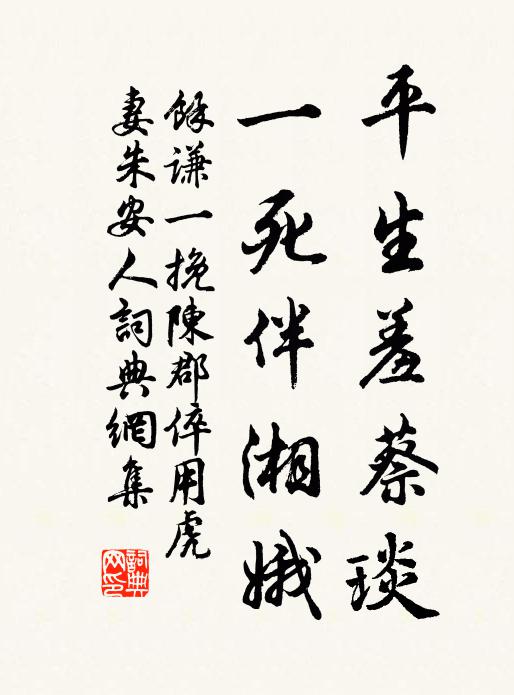 平生羞蔡琰
一死伴湘娥
餘謙一挽陳郡倅用虎
妻朱安人詞典網集
詞典網印